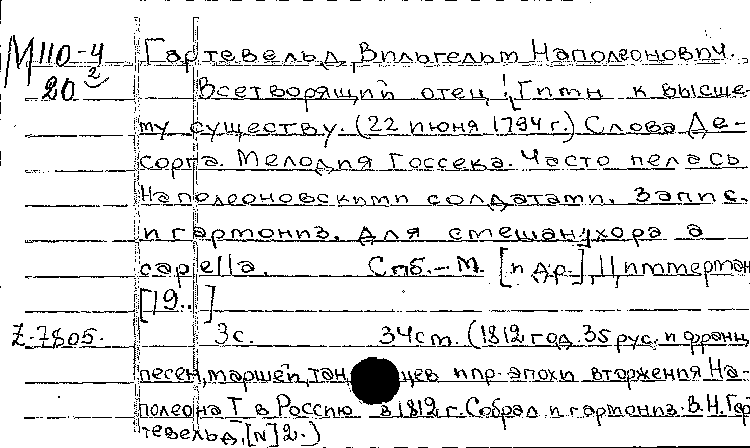 М 110-4 Гартевельд, Вильгельм Наполеонович.
20 2 Всетворящий отец! [Гимн к высше-
му существу. (22 июня 1794 г.) Слова Де-
сорга. Мелодия Госсека. Часто пелась
Наполеоновскими солдатами. Запис.
и гармониз. для смешан. хора a
capella. Спб.-М. [и др.], Циммерман
[19..]
Z-7805. 3 с. 34 см. (1812 год. 35 рус. и франц.
песен, маршей, танцев и пр. эпохи вторжения На-
полеона I в Россию в 1812 г. Собрал и гармониз. В.Н. Гар
тевельд, [N] 2.)